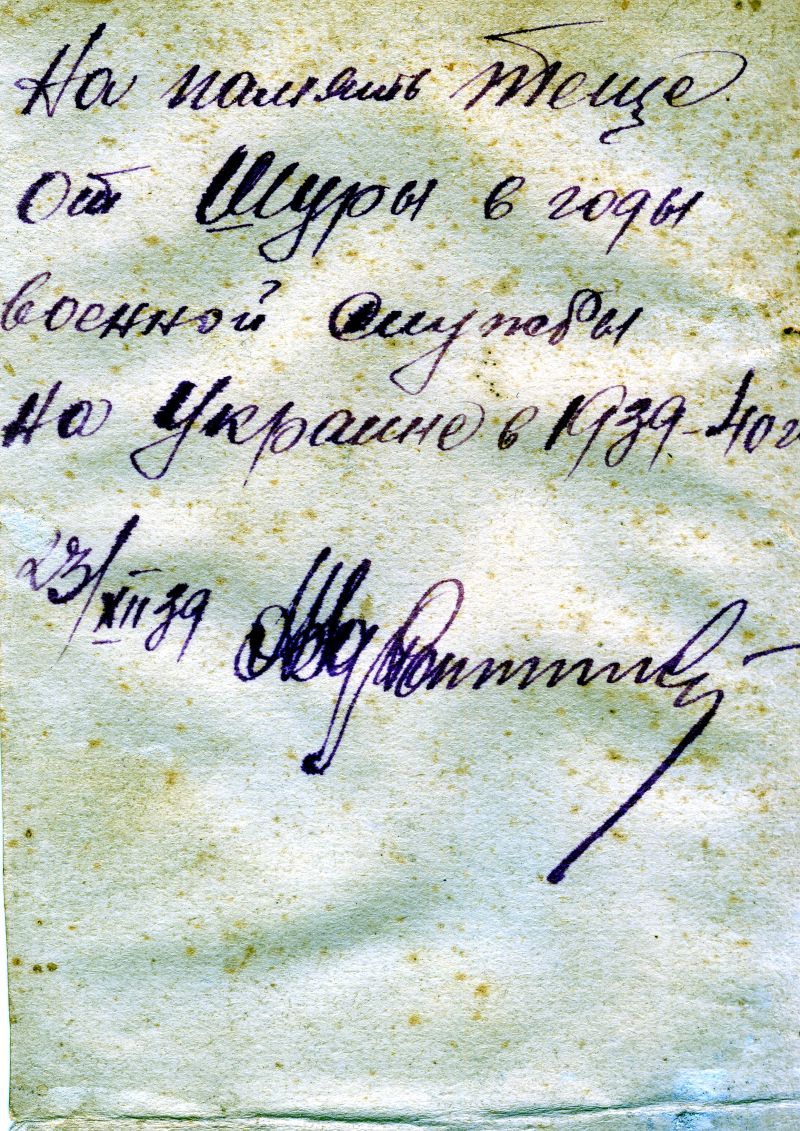 На память Теще
от Шуры в годы
военной службы
на Украине в 1939-40г
23/XII 39